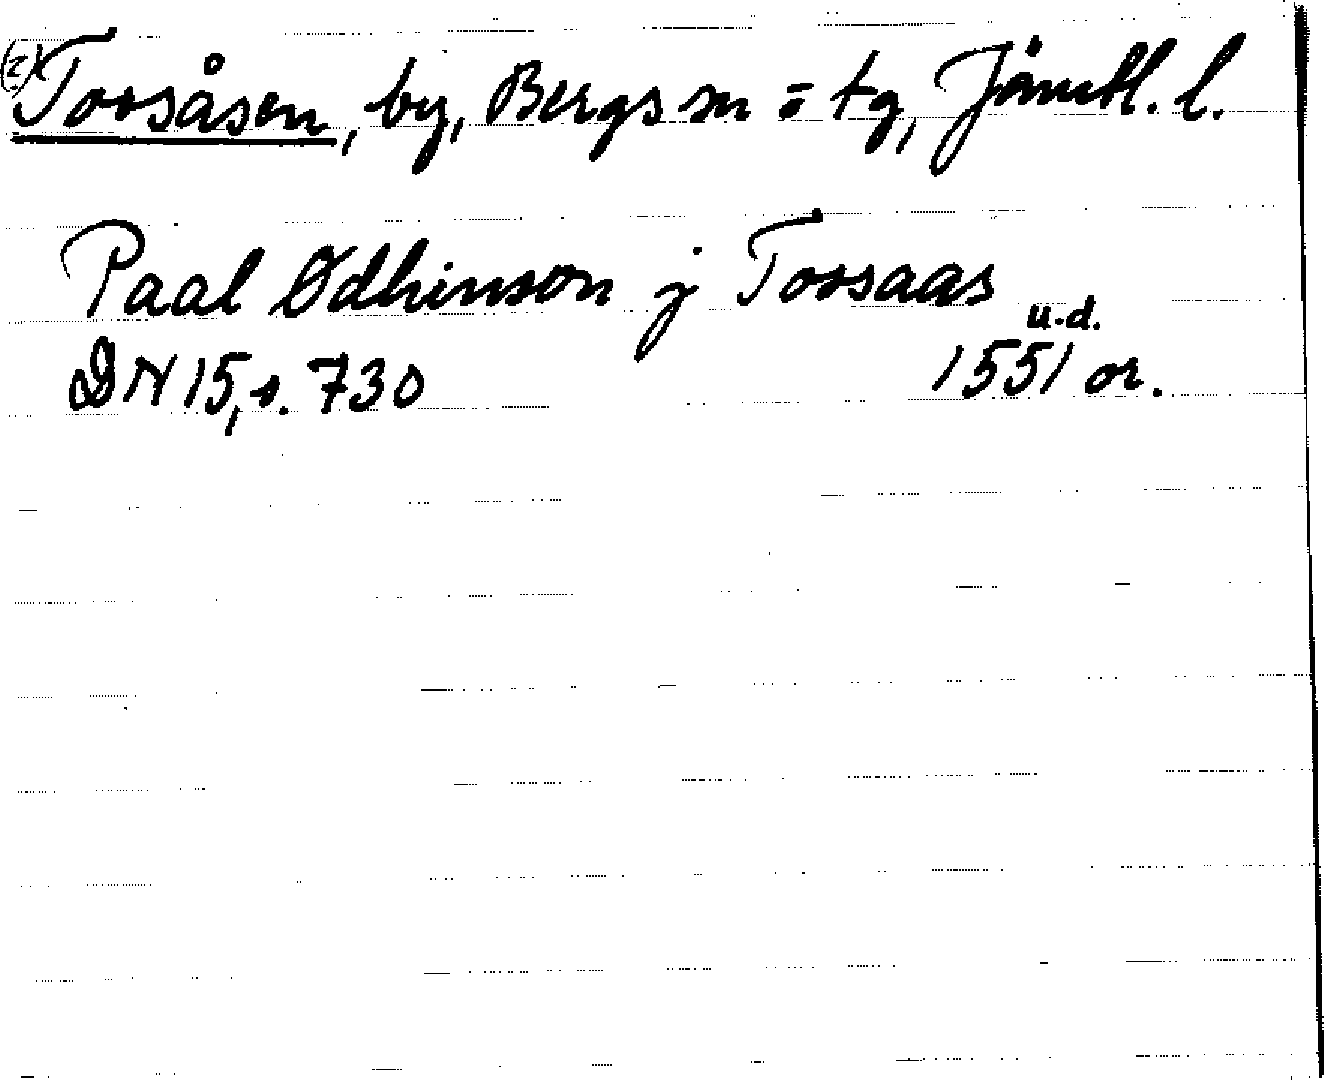 (2) Tossåsen, by, Bergs sn = tg, Jämtl. l.
Paal Ødhinson j Tossaas
u.d.
DN 15, s. 730 1551 or.